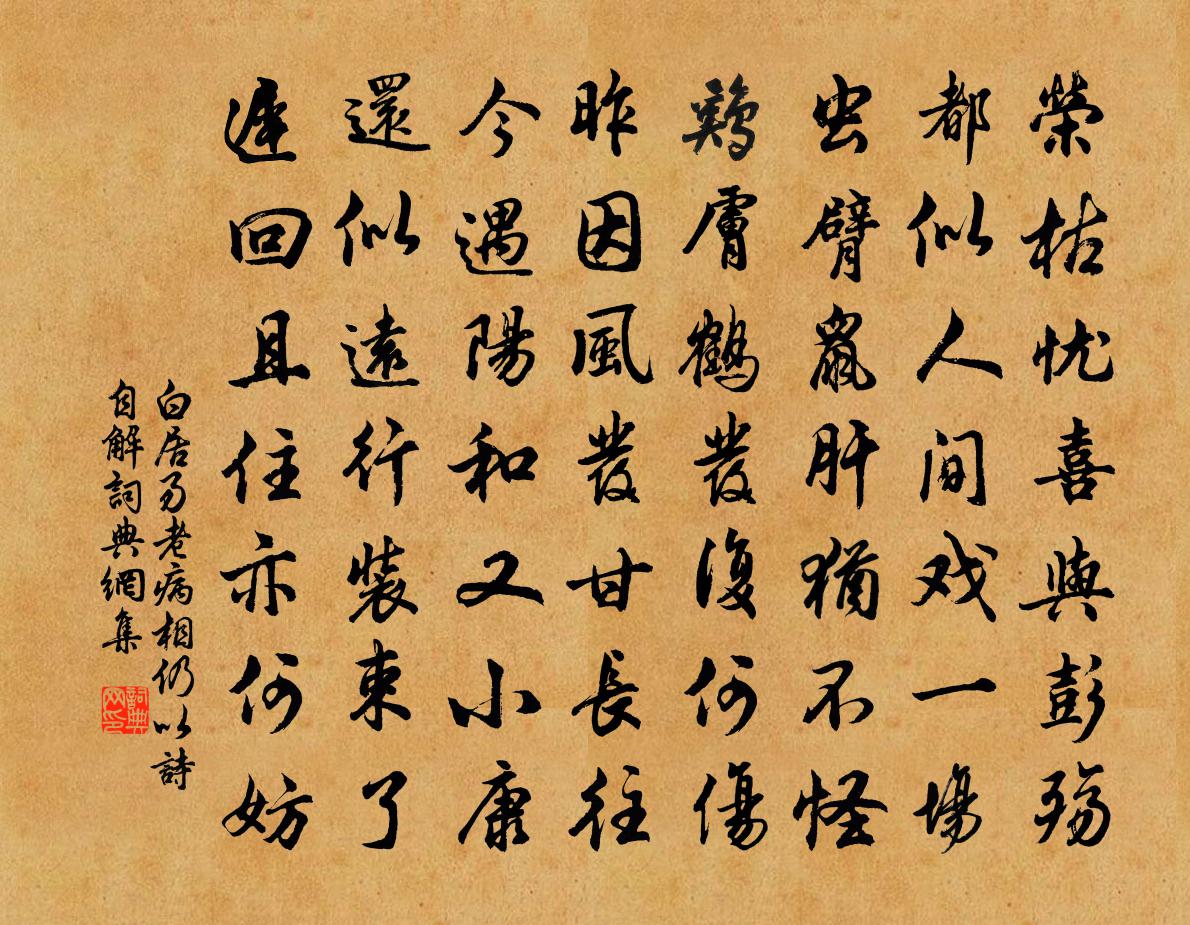 榮枯忧喜與彭殤
都似人间戏一場
虫臂鼠肝猶不怪
鷄膚鶴髮復何傷
昨因風發甘長往
今遇陽和又小康
還似遠行裝束了
遲回且住亦何妨
白居易老病相仍以詩
自解詞典網集
詞典
网印